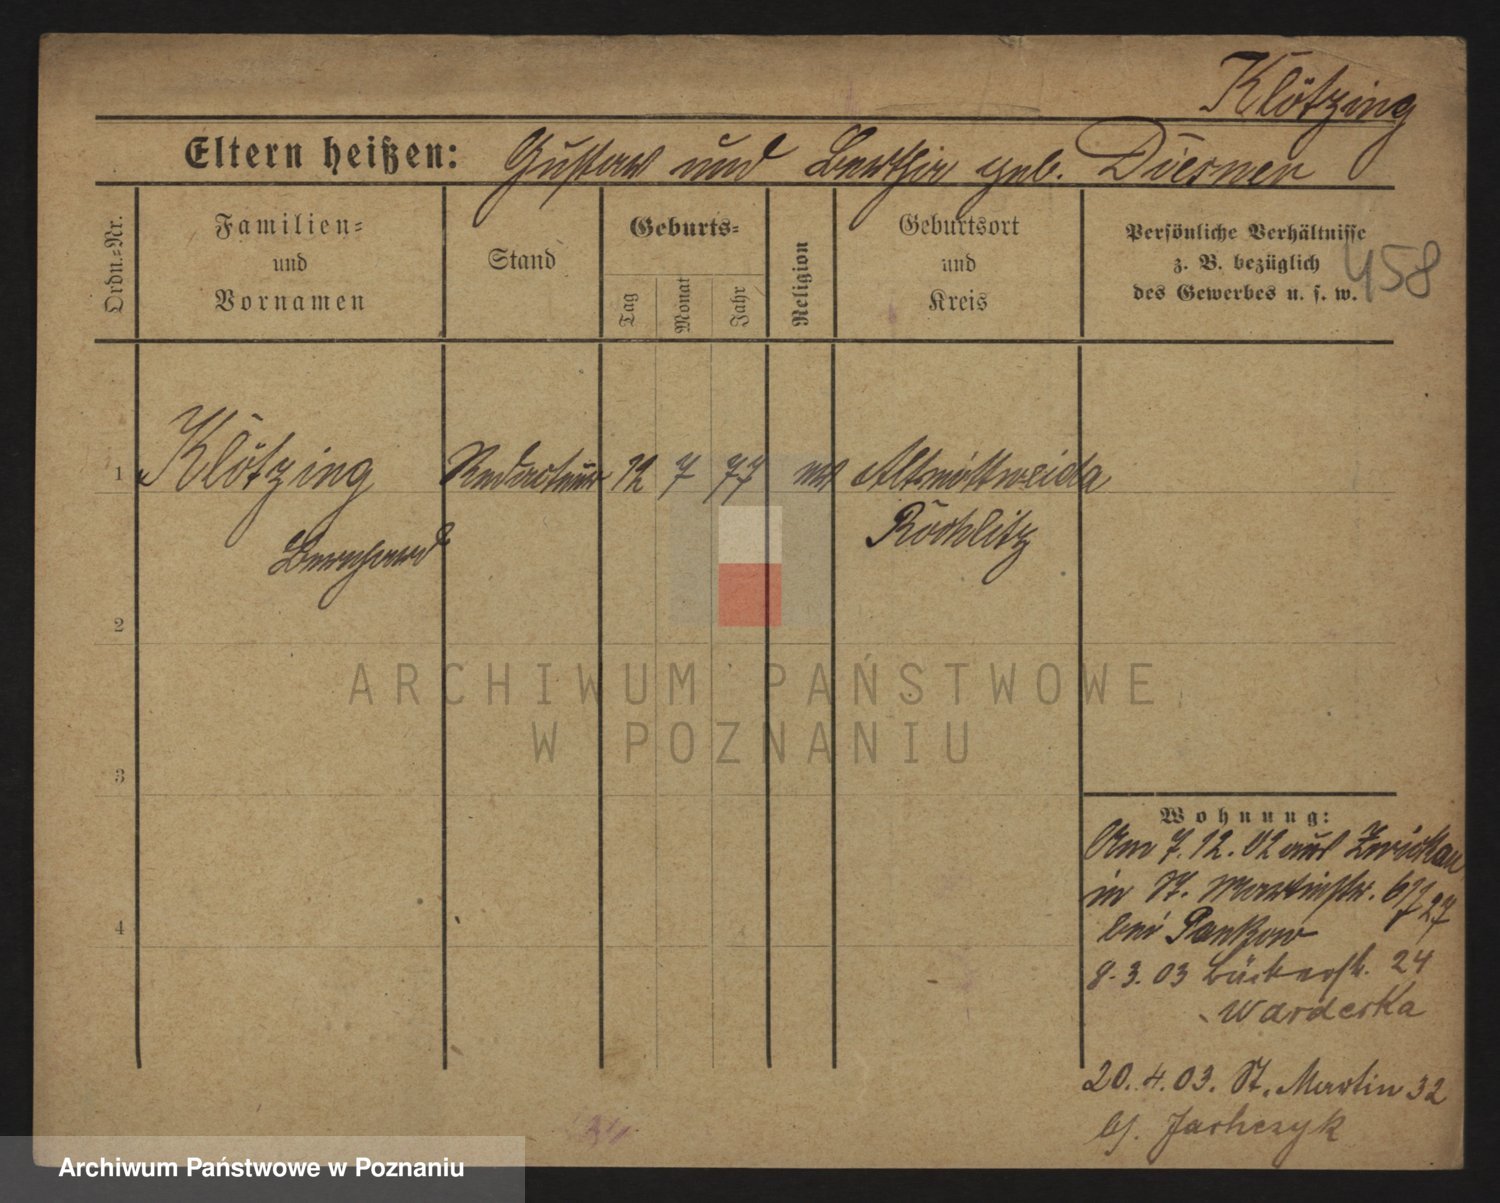 Klötzing
Eltern heißen: Gustav und Bertha geb. Diesner
Ordn.-Nr.
Familien-
und
Vornamen
Stand
Geburts-
Tag
Monat
Jahr
Religion
Geburtsort
und
Kreis
Persönliche Verhältnisse
z. B. bezüglich
des Gewerbes u. s. w.
458
1 Klötzing Redacteur 12 7 77 Altmittweida
Rochlitz
Bernhard
2
3
4
Wohnung:
Am 7. 12. 02 aus Zwickau
in St. Martinstr.
bei Pankow
8. 3. 03 Bäckerstr. 24
20. 4. 03. St. Martin 32
ARCHIWUM PAŃSTWOWE
W POZNANIU
Archiwum Państwowe w Poznaniu